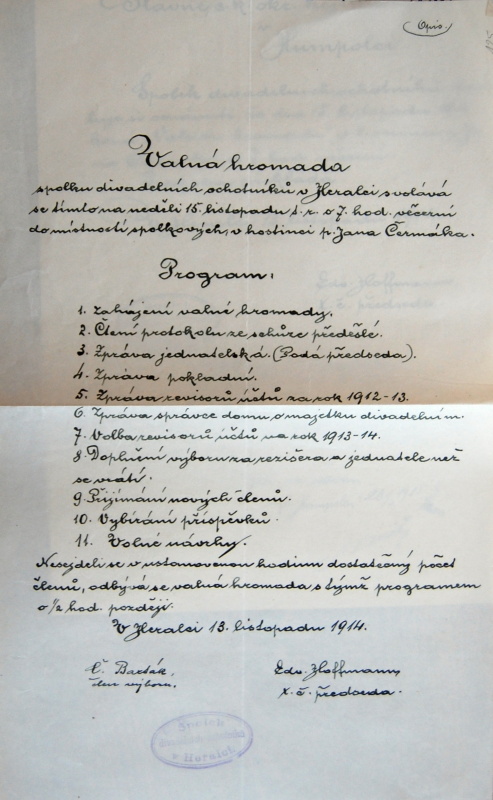 Opis.
Valná hromada
spolku divadelních ochotníků v Heralci svolává
se tímto na neděli 15. listopadu t. r. o 7. hod. večerní
do místností spolkových, v hostinci p. Jana Čermáka.
Program:
1. Zahájení valné hromady.
2. Čtení protokolu ze schůze předešlé.
3. Zpráva jednatelská. (Podá předseda).
4. Zpráva pokladní.
5. Zpráva revisorů účtů za rok 1912-13.
6. Zpráva správce domu o majetku divadelním.
7. Volba revisorů účtů na rok 1913-14.
8. Doplnění výboru za režiséra a jednatele než
se vrátí.
9. Přijímání nových členů.
10. Vybírání příspěvků.
11. Volné návrhy.
Nesejdeli se v ustanovenou hodinu dostatečný počet
členů, odbývá se valná hromada s týmž programem
o ½ hod. později.
V Heralci 13. listopadu 1914.
Č. Barták,
člen výboru.
Edv. Hoffmann,
t. č. předseda.
Spolek